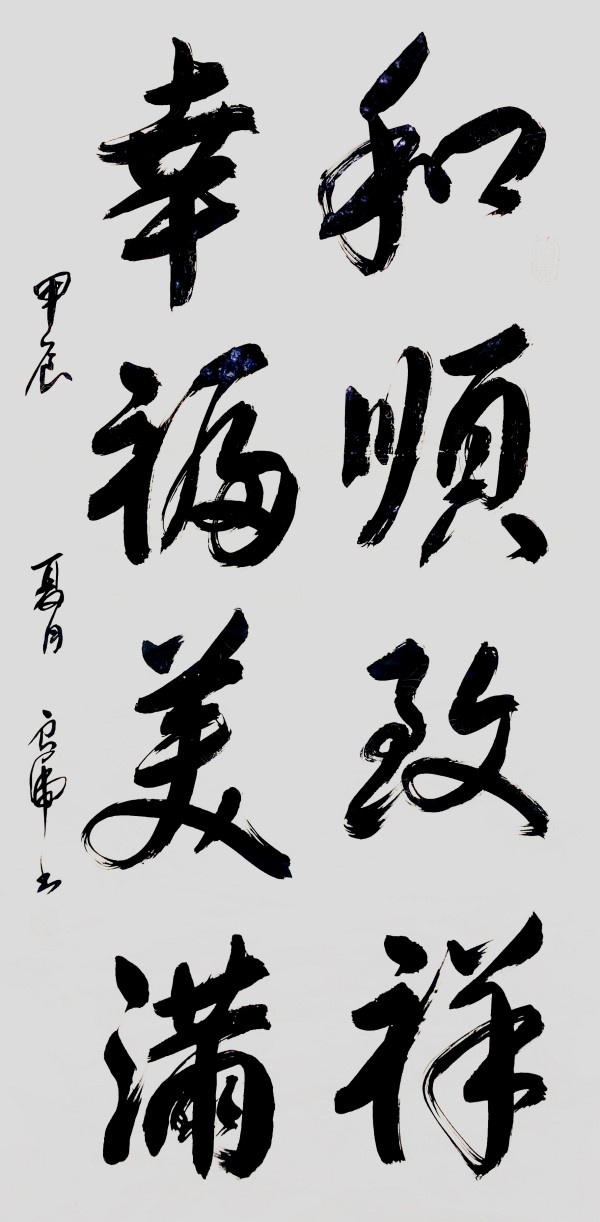 和順致祥
幸福美滿
甲辰 夏月 書